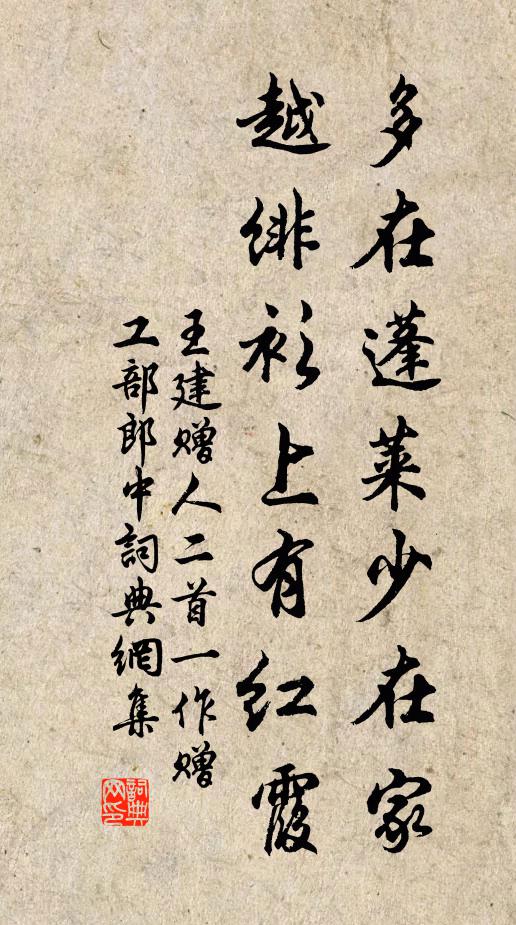 多在蓬莱少在家
越绯衫上有红霞
王建赠人二首一作赠
工部郎中詞典網集
詞典
网印